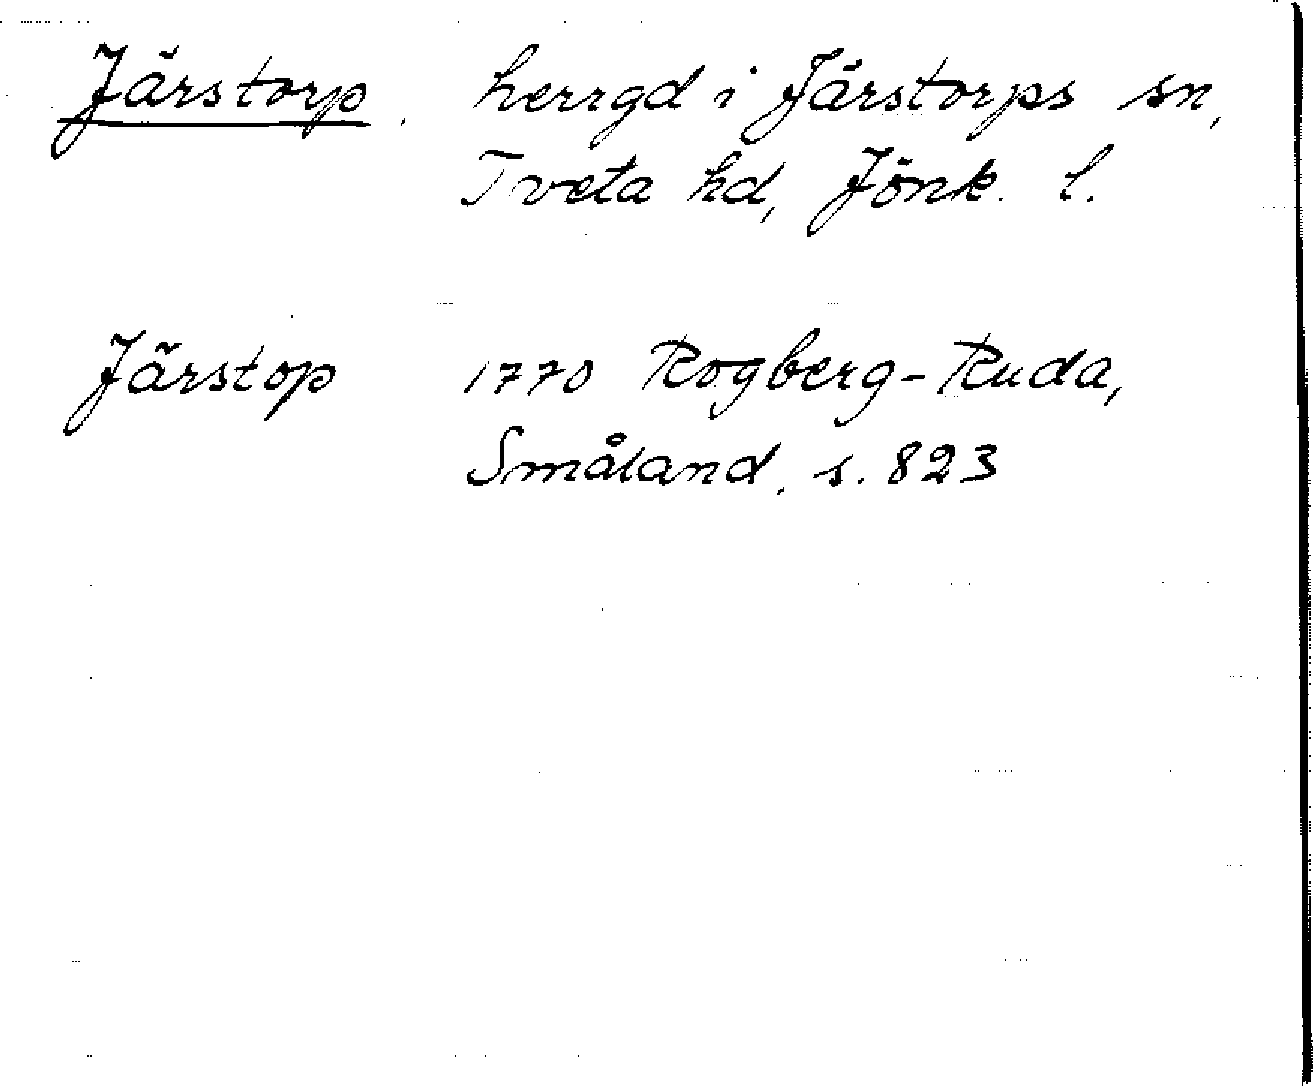 Järstorp, herrgd i Järstorps sn,
Tveta hd, Jönk. l.
Järstop 1770 Rogberg-Ruda,
Småland, s. 823